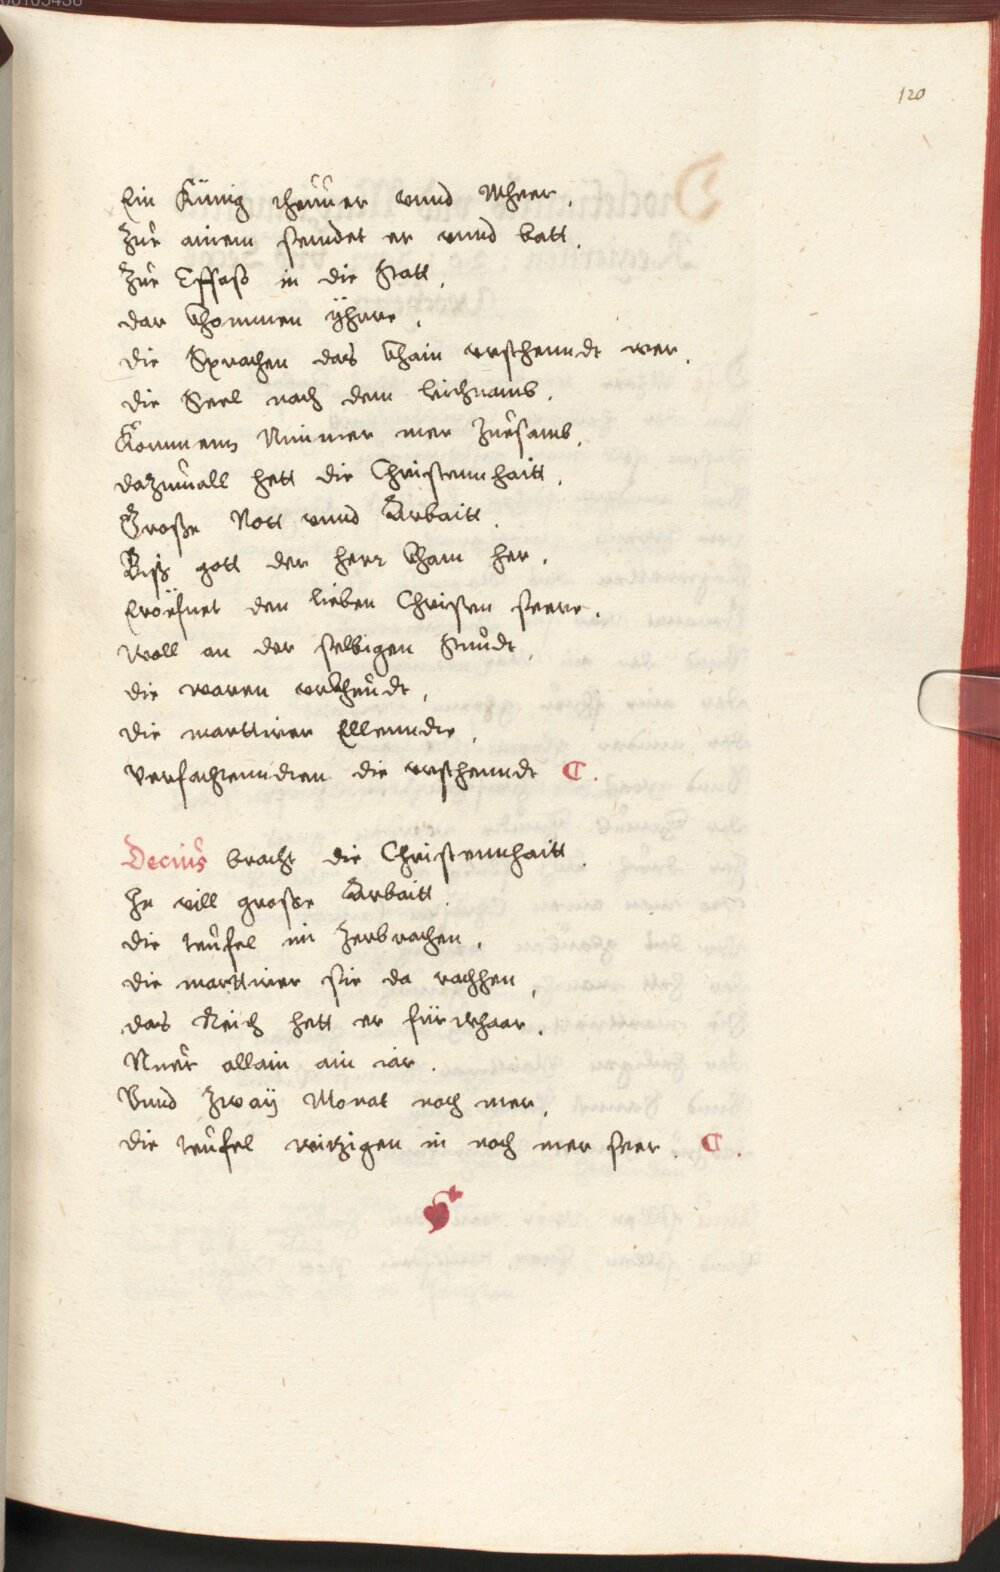 120
Ein Künig theúúer vnnd Wheer.
Zúe ainem sendet er vnnd batt.
Zúe Effesß in die Statt.
dar khommen ÿhrre.
die Sprachen das khain vrsthenndt wer.
die Seel nach dem leichnamb.
Kommens Nimmer mer Zúesamb.
dazúmall hett die Christennhaitt.
Große Nott vnnd Arbaitt.
Biß gott der herr kham her.
Eröfnet den lieben Christen seere.
Woll an der selbigen Stúndt.
die waren vrkhúndt.
die marttirer Ellenndte.
die vrsthenndt C.
Decius bracht die Christennhaitt.
He vill große Arbaitt.
die teúfel im Zerbrachen.
die marttirer sie da rachhen.
das Reich hett er fürwhaar.
Núer allain ain iar.
Vnnd Zwaÿ Monat noch mer.
die teúfel weitzigen in noch mer seer. C.